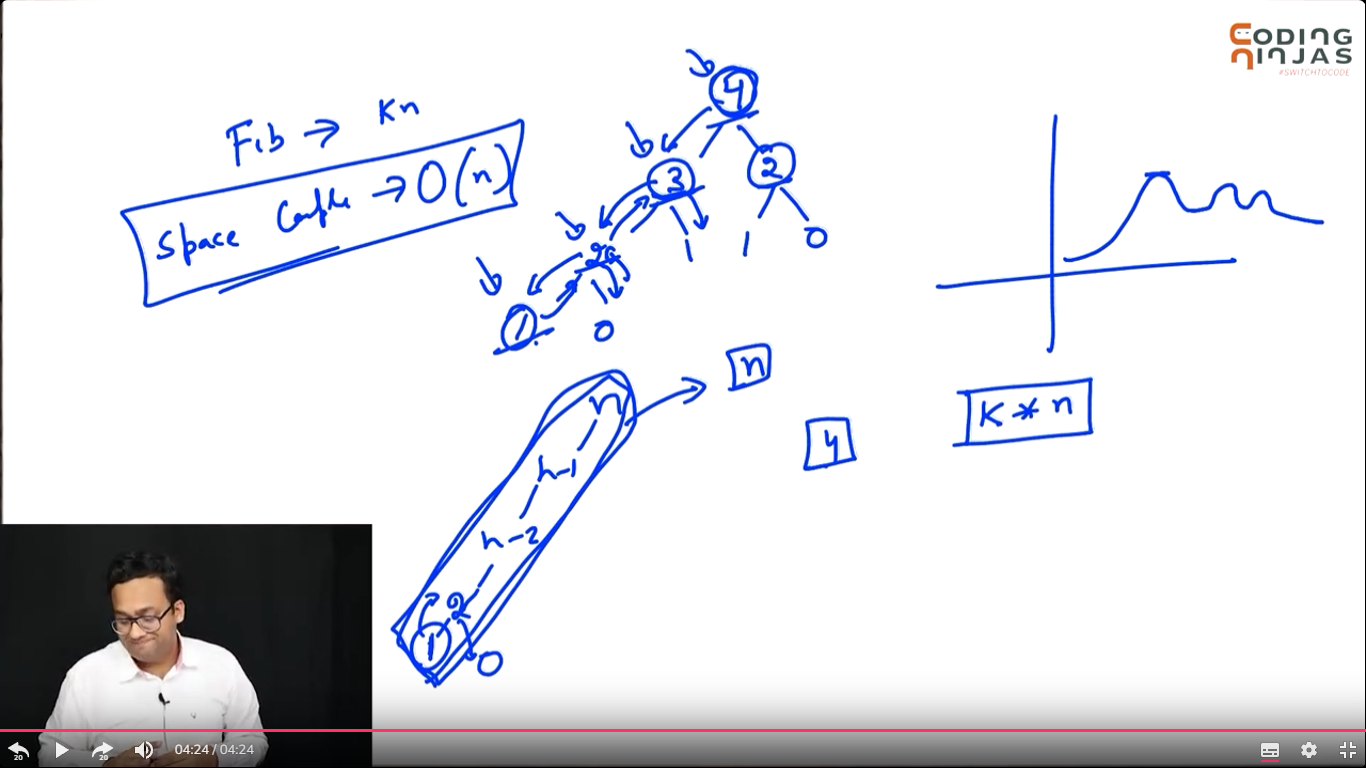 CODING
NINJAS
#SWITCHTOCODE
Fib → Kn
Space → O(n)
4
3
2
2
1
1
0
1
0
n
n
n-1
4
K * n
n-2
2
1
0
20
20
04:24 / 04:24